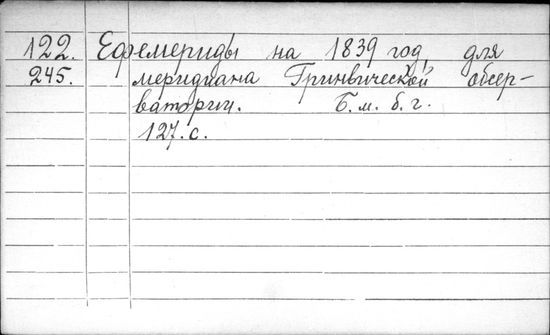 122. Ефемериды на 1839 год, для
245. меридиана Гринвической обсер-
ватории. Б. м. б. г.
127. с.